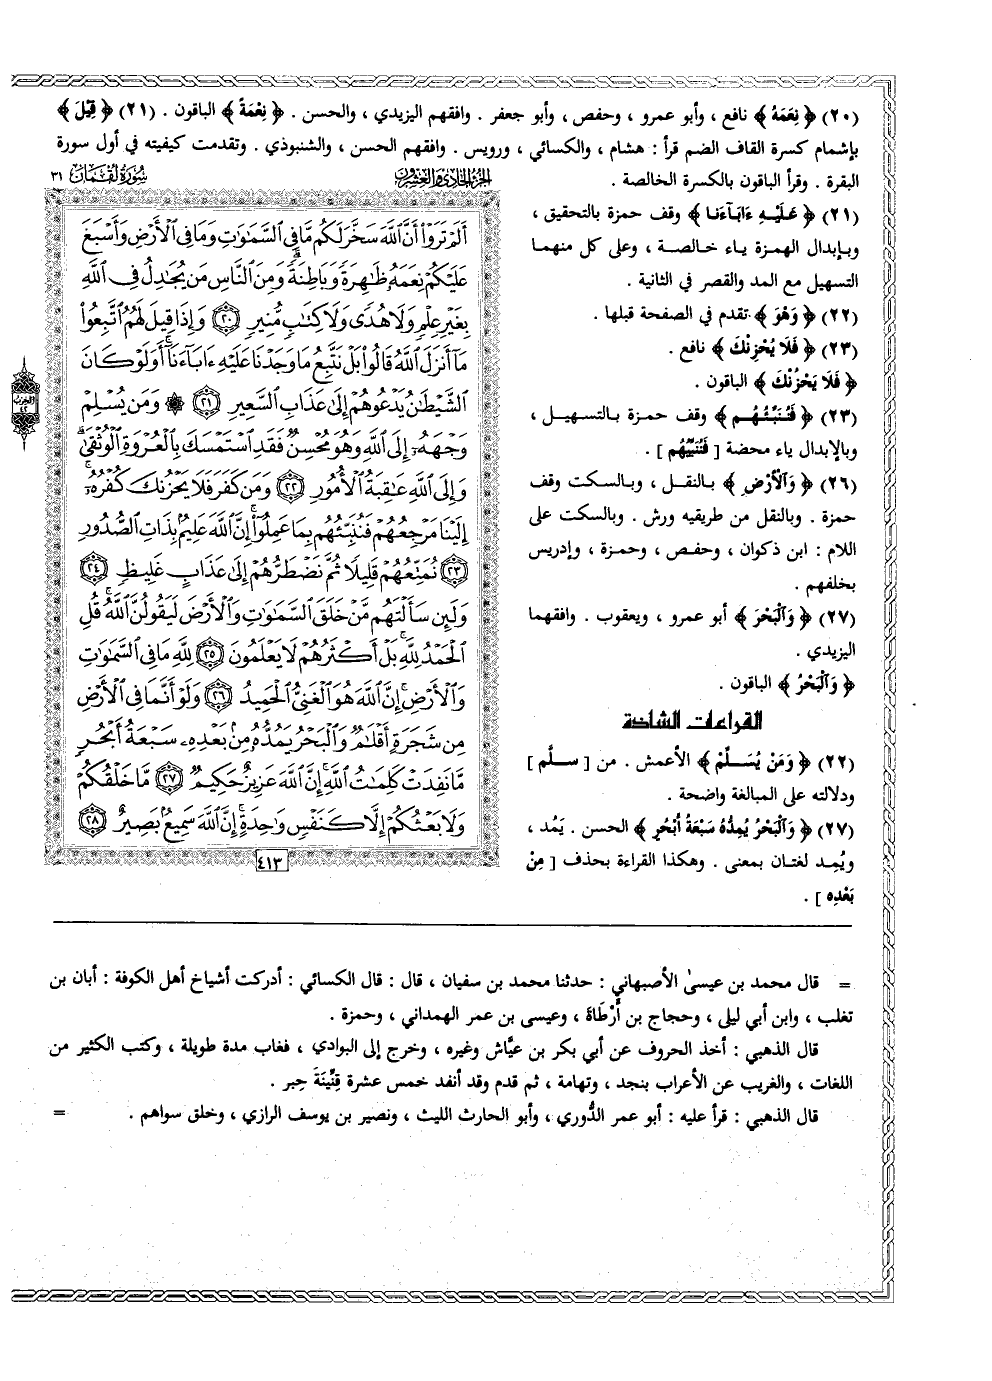 (٢٠) ﴿ نِعَمَهُ ﴾ نافع ، وأبو عمرو ، وحفص ، وأبو جعفر . وافقهم اليزيدي ، والحسن . ﴿ نِعْمَةً ﴾ الباقون . (٢١) ﴿ قِيلَ ﴾
بإشمام كسرة القاف الضم قرأ : هشام ، والكسائي ، ورويس . وافقهم الحسن ، والشنبوذي . وتقدمت كيفيته في أول سورة
البقرة . وقرأ الباقون بالكسرة الخالصة .
(٢١) ﴿ عَلَيْهِ ءَابَآءَنَا ﴾ وقف حمزة بالتحقيق ،
وبإبدال الهمزة ياء خالصة ، وعلى كل منهما
التسهيل مع المد والقصر في الثانية .
(٢٢) ﴿ وَهْوَ ﴾ تقدم في الصفحة قبلها .
(٢٣) ﴿ فَلَا يُحْزِنْكَ ﴾ نافع .
﴿ فَلَا يَحْزُنْكَ ﴾ الباقون .
(٢٣) ﴿ فَنُنَبِّئُهُم ﴾ وقف حمزة بالتسهيل ،
وبالإبدال ياء محضة [ فَنُنَبِّيُهُم ] .
(٢٦) ﴿ وَالْأَرْضِ ﴾ بالنقل ، وبالسكت وقف
حمزة . وبالنقل من طريقيه ورش . وبالسكت على
اللام : ابن ذكوان ، وحفص ، وحمزة ، وإدريس
بخلفهم .
(٢٧) ﴿ وَالْبَحْرَ ﴾ أبو عمرو ، ويعقوب . وافقهما
اليزيدي .
﴿ وَالْبَحْرُ ﴾ الباقون .
القراءات الشاذة
(٢٢) ﴿ وَمَنْ يُسَلِّمْ ﴾ الأعمش . من [ سلَّم ]
ودلالته على المبالغة واضحة .
(٢٧) ﴿ وَالْبَحْرُ يُمِدُّهُ سَبْعَةُ أَبْحُرٍ ﴾ الحسن . يَمُد ،
ويُمِد لغتان بمعنى . وهكذا القراءة بحذف [ مِنْ
بَعْدِهِ ] .
الجزء الحادي والعشرون سورة لقمان ٣١
أَلَمْ تَرَوْا أَنَّ اللَّهَ سَخَّرَ لَكُم مَّا فِي السَّمَٰوَٰتِ وَمَا فِي الْأَرْضِ وَأَسْبَغَ
عَلَيْكُمْ نِعَمَهُ ظَٰهِرَةً وَبَاطِنَةً ۗ وَمِنَ النَّاسِ مَن يُجَٰدِلُ فِي اللَّهِ
بِغَيْرِ عِلْمٍ وَلَا هُدًى وَلَا كِتَٰبٍ مُّنِيرٍ ٢٠ وَإِذَا قِيلَ لَهُمُ اتَّبِعُوا
مَا أَنزَلَ اللَّهُ قَالُوا بَلْ نَتَّبِعُ مَا وَجَدْنَا عَلَيْهِ ءَابَآءَنَا ۚ أَوَلَوْ كَانَ
الشَّيْطَٰنُ يَدْعُوهُمْ إِلَىٰ عَذَابِ السَّعِيرِ ٢١ ۞ وَمَن يُسْلِمْ
وَجْهَهُ إِلَى اللَّهِ وَهُوَ مُحْسِنٌ فَقَدِ اسْتَمْسَكَ بِالْعُرْوَةِ الْوُثْقَىٰ ۗ
وَإِلَى اللَّهِ عَٰقِبَةُ الْأُمُورِ ٢٢ وَمَن كَفَرَ فَلَا يَحْزُنكَ كُفْرُهُ ۚ
إِلَيْنَا مَرْجِعُهُمْ فَنُنَبِّئُهُم بِمَا عَمِلُوا ۚ إِنَّ اللَّهَ عَلِيمٌ بِذَاتِ الصُّدُورِ
٢٣ نُمَتِّعُهُمْ قَلِيلًا ثُمَّ نَضْطَرُّهُمْ إِلَىٰ عَذَابٍ غَلِيظٍ ٢٤
وَلَئِن سَأَلْتَهُم مَّنْ خَلَقَ السَّمَٰوَٰتِ وَالْأَرْضَ لَيَقُولُنَّ اللَّهُ ۚ قُلِ
الْحَمْدُ لِلَّهِ ۚ بَلْ أَكْثَرُهُمْ لَا يَعْلَمُونَ ٢٥ لِلَّهِ مَا فِي السَّمَٰوَٰتِ
وَالْأَرْضِ ۚ إِنَّ اللَّهَ هُوَ الْغَنِيُّ الْحَمِيدُ ٢٦ وَلَوْ أَنَّمَا فِي الْأَرْضِ
مِن شَجَرَةٍ أَقْلَٰمٌ وَالْبَحْرُ يَمُدُّهُ مِن بَعْدِهِ سَبْعَةُ أَبْحُرٍ
مَّا نَفِدَتْ كَلِمَٰتُ اللَّهِ ۗ إِنَّ اللَّهَ عَزِيزٌ حَكِيمٌ ٢٧ مَّا خَلْقُكُمْ
وَلَا بَعْثُكُمْ إِلَّا كَنَفْسٍ وَٰحِدَةٍ ۗ إِنَّ اللَّهَ سَمِيعٌ بَصِيرٌ ٢٨
٤١٣
الحزب
٤٢
= قال محمد بن عيسىٰ الأصبهاني : حدثنا محمد بن سفيان ، قال : قال الكسائي : أدركت أشياخ أهل الكوفة : أبان بن
تغلب ، وابن أبي ليلى ، وحجاج بن أَرْطَاة ، وعيسى بن عمر الهمداني ، وحمزة .
قال الذهبي : أخذ الحروف عن أبي بكر بن عيَّاش وغيره ، وخرج إلى البوادي ، فغاب مدة طويلة ، وكتب الكثير من
اللغات ، والغريب عن الأعراب بنجد ، وتهامة ، ثم قدم وقد أنفد خمس عشرة قِنِّينَةَ حِبر .
قال الذهبي : قرأ عليه : أبو عمر الدُّوري ، وأبو الحارث الليث ، ونصير بن يوسف الرازي ، وخلق سواهم . =